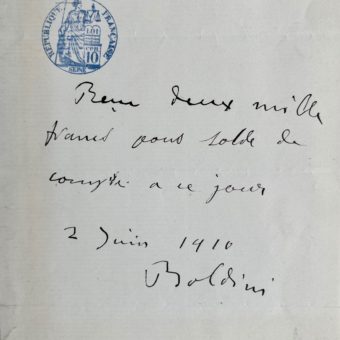 RÉPUBLIQUE FRANÇAISE
LOI
10
SEINE
Reçu deux mille
francs pour solde de
compte a ce jour
2 Juin 1910
Boldini